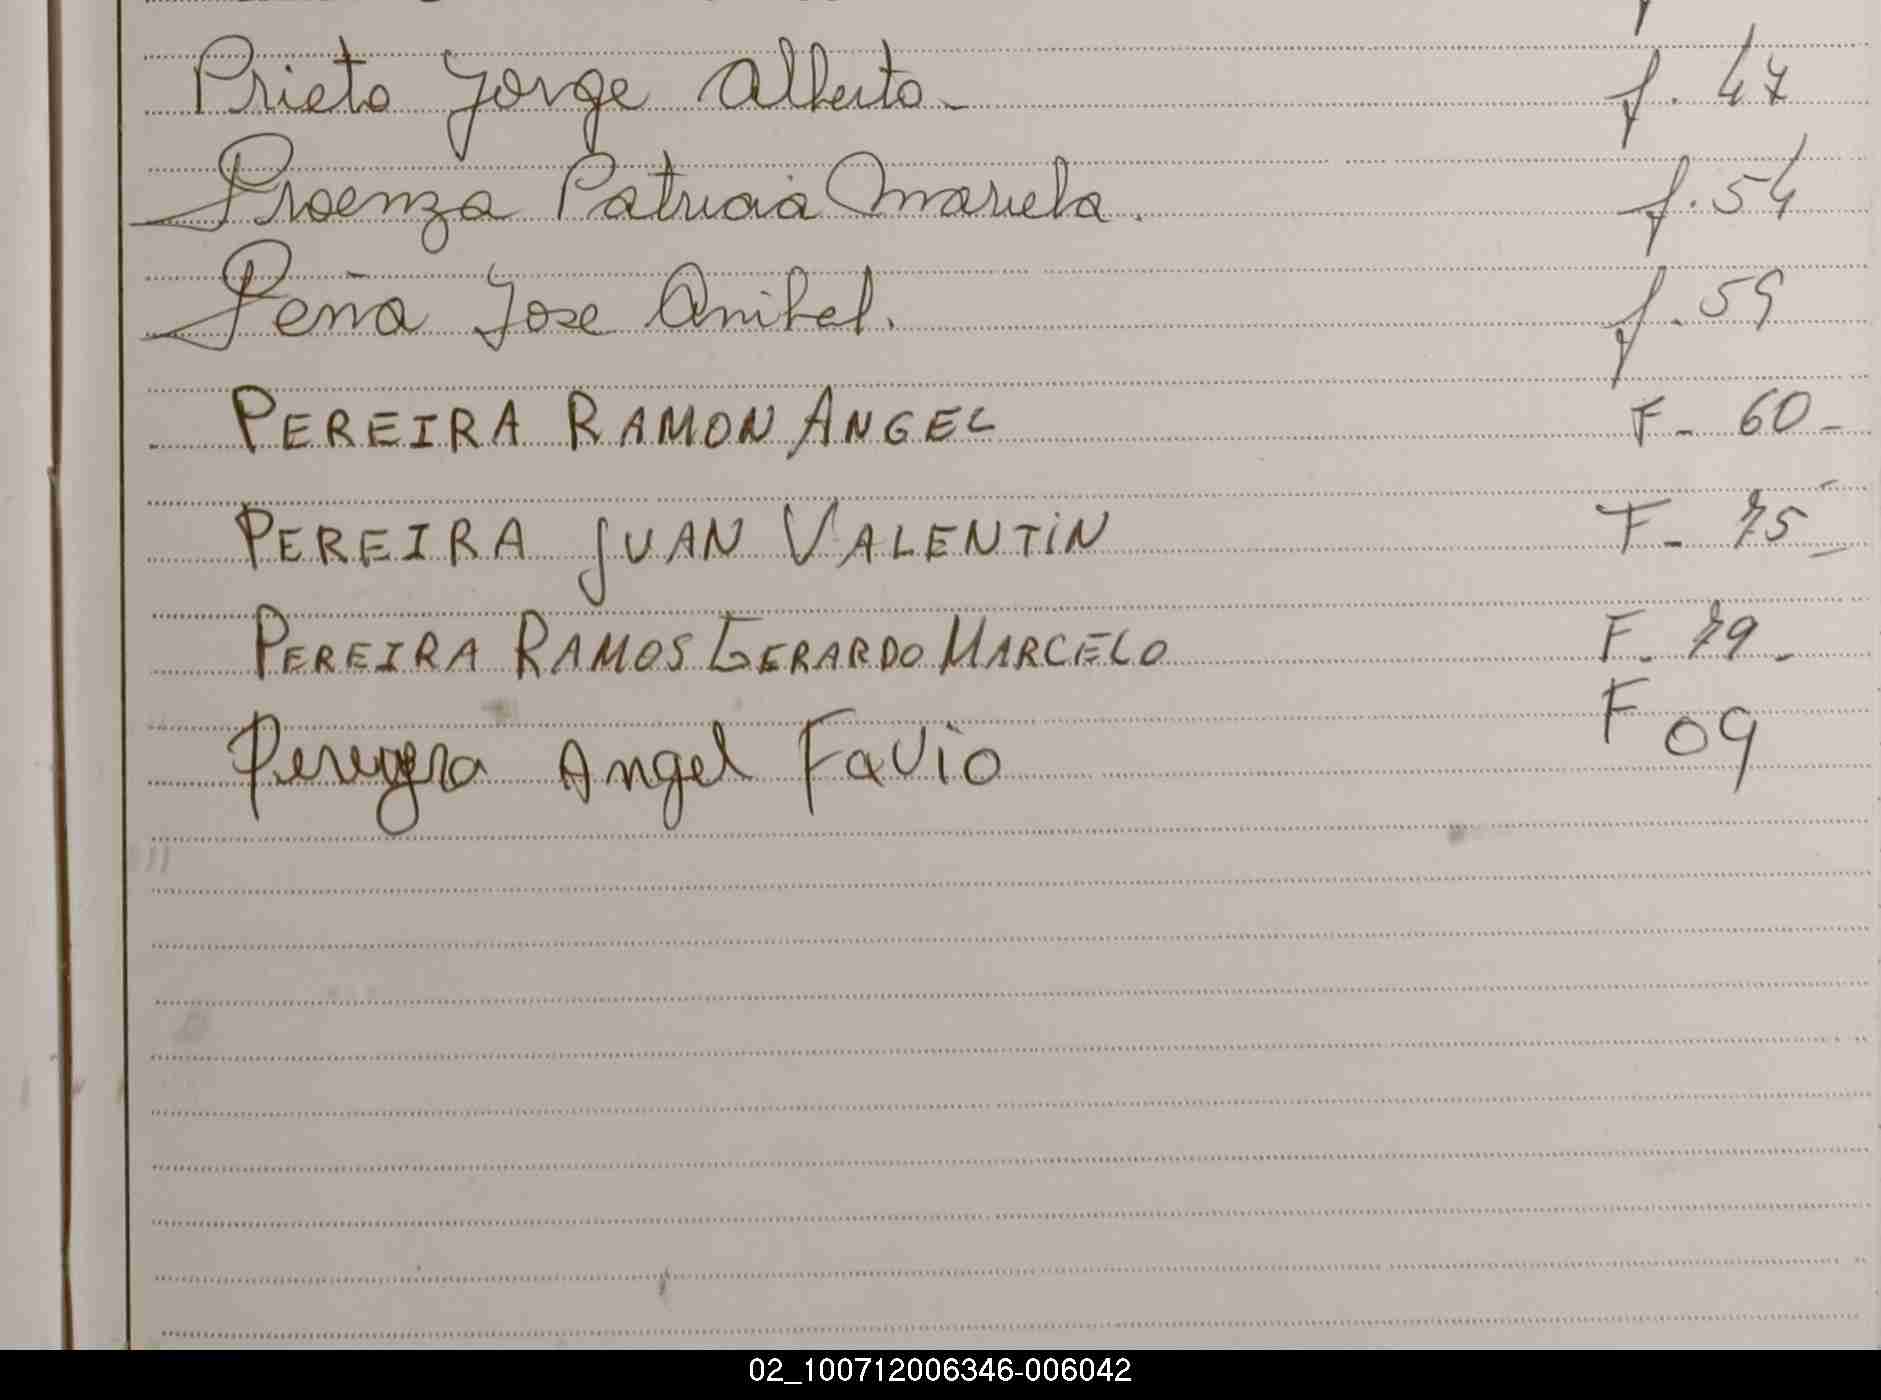 Prieto Jorge Alberto - f. 47
Proenza Patricia Mariela. f. 54
Peña Jose Anibal. f. 59
PEREIRA RAMON ANGEL F- 60-
PEREIRA JUAN VALENTiN F- 75-
PEREIRA RAMOS GERARDO MARCELO F- 79-
Pereyra Angel Favio F 09
02_100712006346-006042